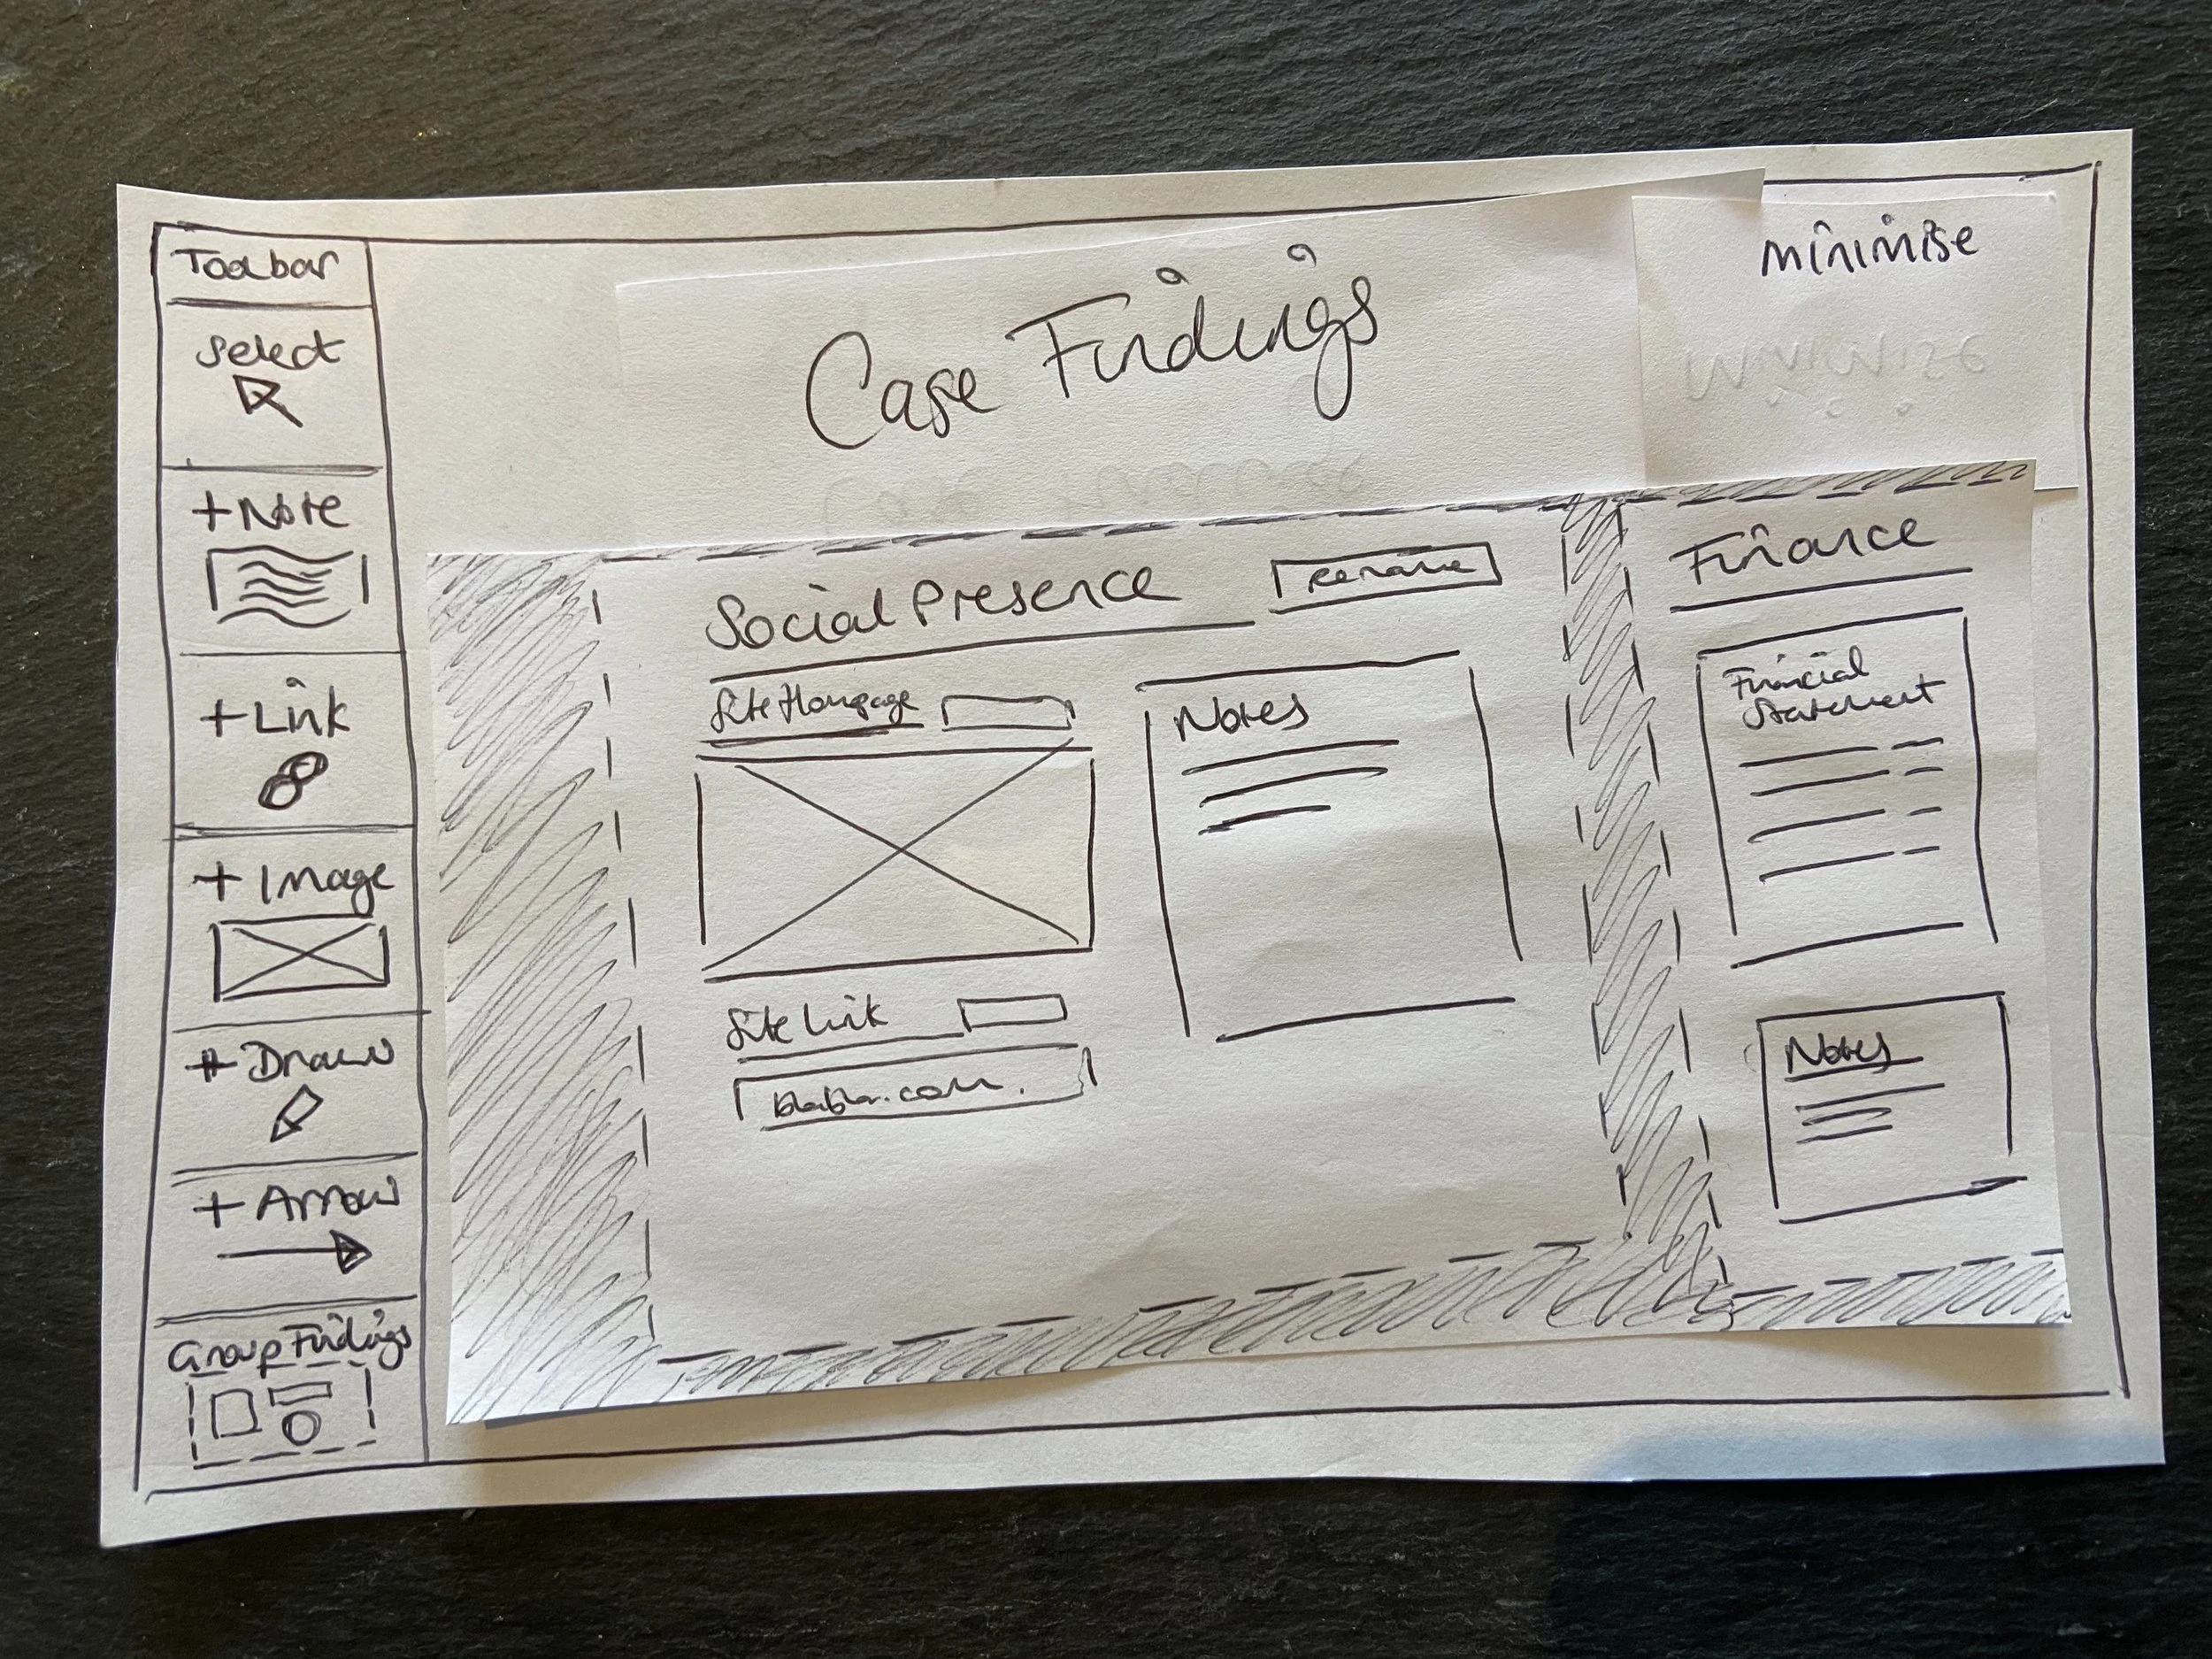 Toolbar
Select
+Note
+Link
+Image
+Draw
+Arrow
Group Findings
Case Findings
minimise
Social Presence
rename
Site Homepage
Notes
Site Link
blabla.com.
Finance
Financial
Statement
Notes